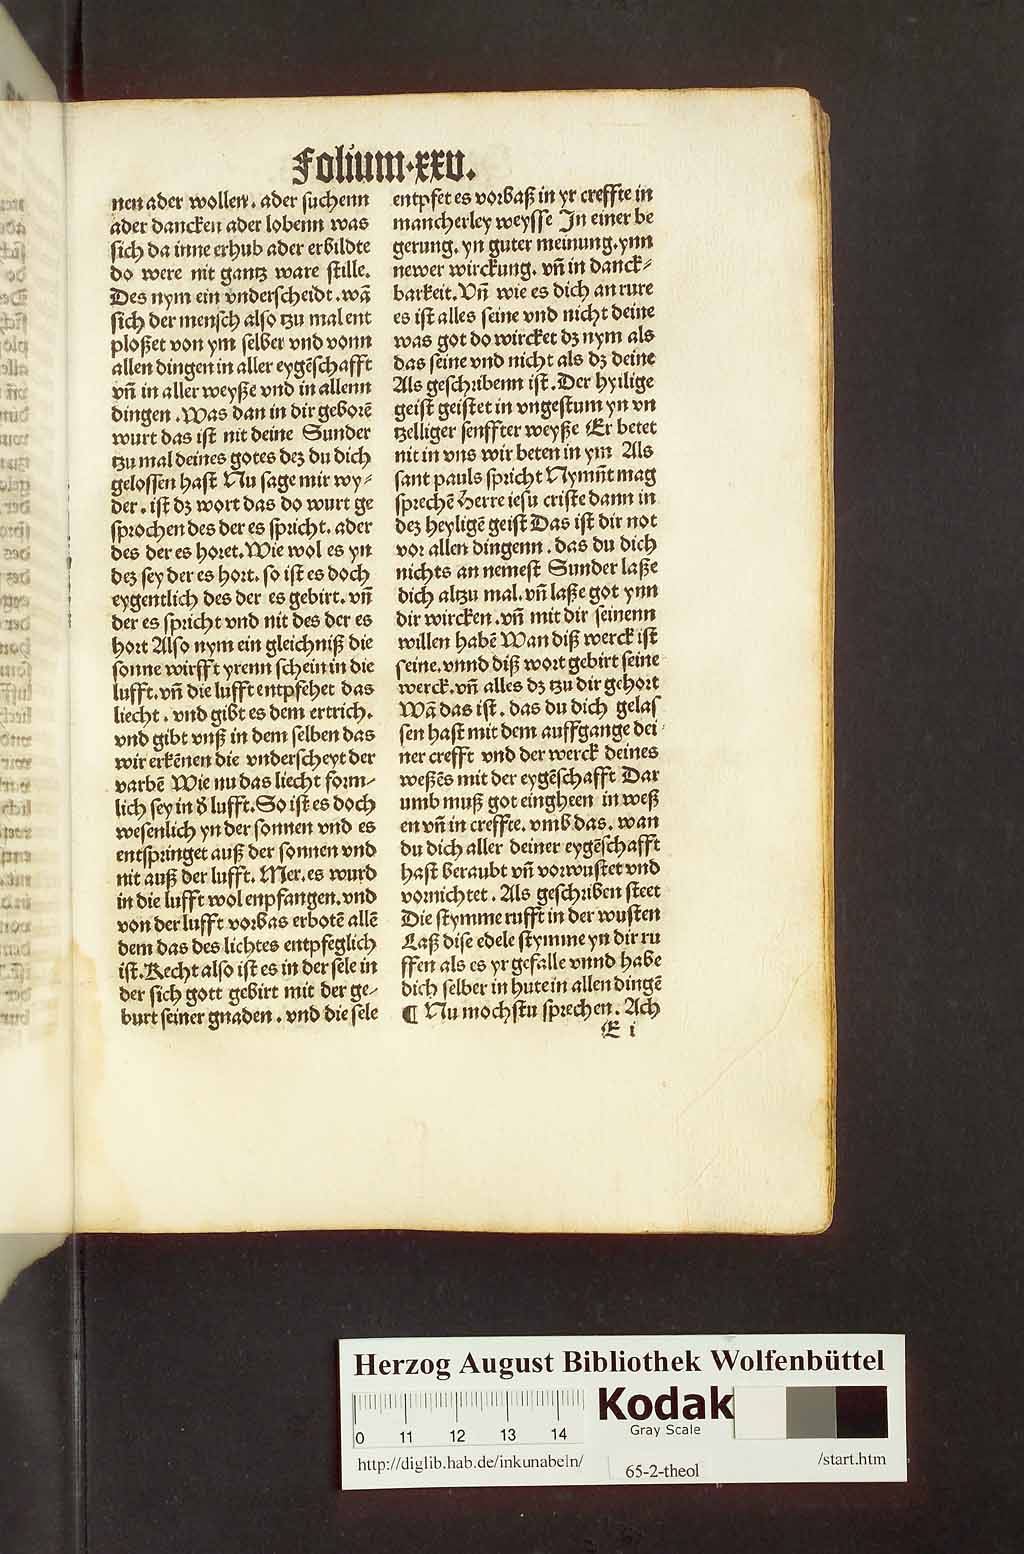 Folium·xxv.
nen ader wollen. ader suchenn
ader dancken ader lobenn was
sich da inne erhub ader erbildte
do were nit gantz ware stille.
Des nym ein vnderscheidt. wā
sich der mensch also tzu mal ent
ploßet von ym selber vnd vonn
allen dingen in aller eygēschafft
vn̄ in aller weyße vnd in allenn
dingen. Was dan in dir geborē
wurt das ist nit deine Sunder
tzu mal deines gotes deʒ du dich
gelossen hast Nu sage mir wy⸗
der. ist dʒ wort das do wurt ge
sprochen des der es spricht. ader
des der es horet. Wie wol es yn
deʒ sey der es hort. so ist es doch
eygentlich des der es gebirt. vn̄
der es spricht vnd nit des der es
hort Also nym ein gleichniß die
sonne wirfft yrenn schein in die
lufft. vn̄ die lufft entpfehet das
liecht. vnd gibt es dem ertrich.
vnd gibt vnß in dem selben das
wir erkēnen die vnderscheyt der
varbē Wie nu das liecht form⸗
lich sey in d̕ lufft. So ist es doch
wesenlich yn der sonnen vnd es
entspringet auß der sonnen vnd
nit auß der lufft. Mer. es wurd
in die lufft wol enpfangen. vnd
von der lufft vorbas erbotē allē
dem das des lichtes entpfeglich
ist. Recht also ist es in der sele in
der sich gott gebirt mit der ge⸗
burt seiner gnaden. vnd die sele
entpfet es vorbaß in yr creffte in
mancherley weysse In einer be
gerung. yn guter meinung. ynn
newer wirckung. vn̄ in danck⸗
barkeit. Vn̄ wie es dich an rure
es ist alles seine vnd nicht deine
was got do wircket dʒ nym als
das seine vnd nicht als dʒ deine
Als geschribenn ist. Der hyilige
geist geistet in vngestum yn vn
tzelliger senffter weyße Er betet
nit in vns wir beten in ym Als
sant pauls spricht Nymn̄t mag
sprechē Herre iesu criste dann in
deʒ heyligē geist Das ist dir not
vor allen dingenn. das du dich
nichts an nemest Sunder laße
dich altzu mal. vn̄ laße got ynn
dir wircken. vn̄ mit dir seinenn
willen habē Wan diß werck ist
seine. vnnd diß wort gebirt seine
werck. vn̄ alles dʒ tzu dir gehort
Wā das ist. das du dich gelas
sen hast mit dem auffgange dei⸗
ner crefft vnd der werck deines
weßēs mit der eygēschafft Dar
umb muß got eingheen in weß
en vn̄ in creffte. vmb das. wan
du dich aller deiner eygēschafft
hast beraubt vn̄ vorwustet vnd
vornichtet. Als geschriben steet
Die stymme rufft in der wusten
Laß dise edele stymme yn dir ru
ffen als es yr gefalle vnnd habe
dich selber in hute in allen dingē
¶ Nu mochstu sprechen. Ach
E i
Herzog August Bibliothek Wolfenbüttel
0 11 12 13 14
Kodak
Gray Scale
http://diglib.hab.de/inkunabeln/
65-2-theol
/start.htm